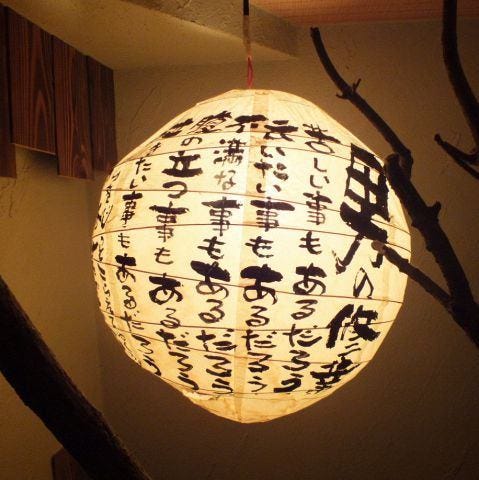 男の修業
苦しい事もあるだろう
云いたい事もあるだろう
不満な事もあるだろう
腹の立つ事もあるだろう
泣きたい事もあるだろう